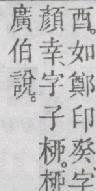 酉。如鄭印癸、字
顏幸、字子桺。桺
廣伯說。